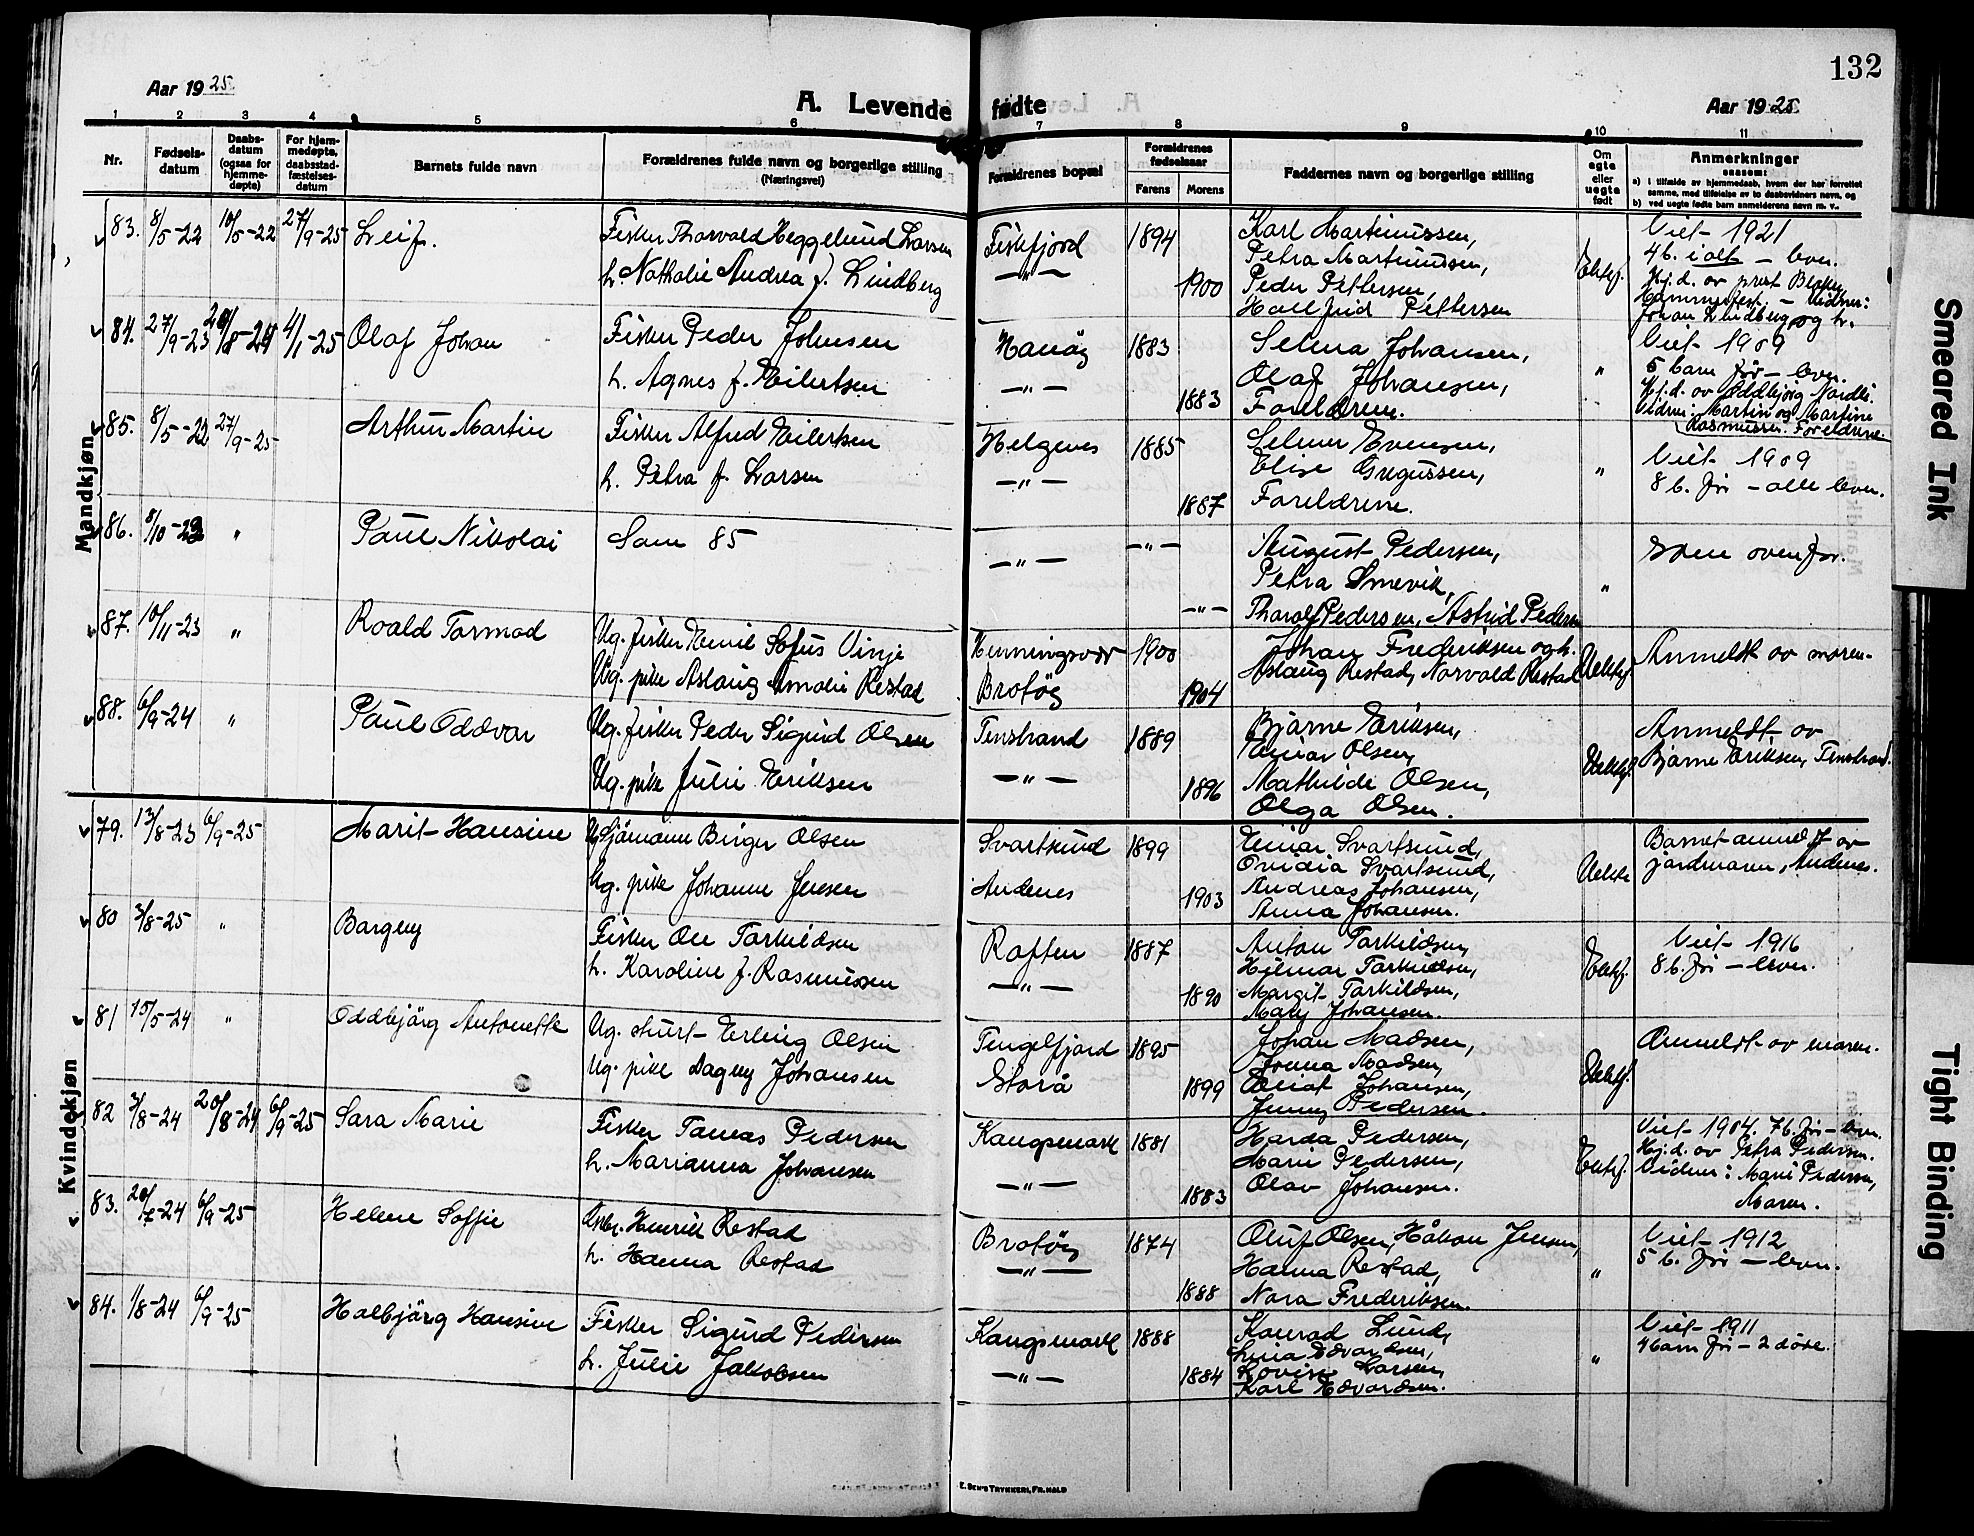 132
Aar 1925.
A. Levende fødte
Aar 1925.
1 2 3 4 5 6 7 8 9 10 11
Nr.
Fødsels-datum
Daabs-datum (ogsaa for hjemme-døpte)
For hjem-medøpte, daabsstad-fæstelses-datum
Barnets fulde navn
Forældrenes fulde navn og borgerlige stilling
(Næringsvei)
Forældrenes bopæl
Forældrenes fødselsaar
Farens Morens
Faddernes navn og borgerlige stilling
Om egte eller uegte født
Anmerkninger
saasom:
a) i tilfælde av hjemmedaab, hvem der har forrettet
samme, med tilføielse av to daabsvidners navn, og
b) ved uegte fødte barn anmelderens navn m. v.
Mandkjøn
83. 8/5-22 10/5-22 27/9-25 Leif.
Fisker Thorvald Heggelund Larsen
h. Nathalie Andrea f. Lindberg
Fiskfjord 1894
—"— 1900
Karl Martinussen,
Petra Martinussen,
Peder Pettersen,
Hallfrid Pettersen
Ektef.
Viet 1921
4 b. i alt – lever.
Hj.d. av prest
Hammerfest. – Vidner:
Johan Lindberg og h.
84. 27/9-23 4/1-25 Olaf Johan
Fisker Peder Johnsen
h. Agnes f. Eilertsen
Hanøy 1883
—"— 1883
Selma Johansen,
Olaf Johansen,
Foreldrene.
"
Viet 1909
5 barn før – lever.
Hj.d. av Oddbjørg Nordli.
Vidner: Martin og Martine
Rasmussen. Foreldrene.
85. 8/5-22 27/9-25 Arthur Martin
Fisker Alfred Eilertsen
h. Petra f. Larsen
Helgenes 1885
—"— 1887
Selmer Evensen,
Elise Gregussen,
Foreldrene.
"
Viet 1909
8 b. før – alle lever.
86. 8/10-23 " Paul Nikolai
Som 85
—"— —"—
—"—
August Pedersen,
Petra Smevik,
Tharolf Pedersen, Astrid Pedersen
"
Som ovenfor.
87. 10/11-23 " Roald Tormod
Ug. fisker Emil Sofus Vinje
Ug. pike Aslaug Amalie Restad
Henningsvær 1900
Brotøy 1904
Johan Frederiksen og h.
Aslaug Restad, Norvald Restad
Uektef.
Anmeldt av moren.
88. 6/9-24 " Paul Oddvar
Ug. fisker Peder Sigurd Olsen
Ug. pike Julie Eriksen
Tenstrand 1889
—"— 1896
Bjarne Eriksen,
Einar Olsen,
Mathilde Olsen,
Olga Olsen.
Uektef.
Anmeldt av
Bjarne Eriksen, Tenstrand.
Kvindekjøn
79. 13/8-23 6/9-25 Marit Hansine
Ug. Sjömann Birger Olsen
Ug. pike Johanne Jensen
Svartsund 1899
Andenes 1903
Einar Svartsund,
Ovidia Svartsund,
Andreas Johansen,
Anna Johansen.
Uekte
Barnet anmeldt av
jordmoren, Andenes.
80 3/8-25 " Bargny
Fisker Ole Torkildsen
h. Karoline f. Rasmussen
Raften 1887
—"— 1890
Anton Torkildsen,
Hilmar Torkildsen,
Margit Torkildsen,
Mary Johansen.
Ektef.
Viet 1916
8 b. før – lever.
81 15/5-24 " Oddbjörg Antonette
Ug. Erling Olsen
Ug. pike Dagny Johansen
Tengelfjord 1895
Storå 1899
Johan Madsen,
Jonna Madsen,
Johansen,
Jenny Pedersen.
Uektef.
Anmeldt av moren.
82 3/8-24 20/8-24 6/9-25 Sara Marie
Fisker Tomas Pedersen
h. Marianna Johansen
Kangsmark 1881
—"— 1883
Harda Pedersen,
Marie Pedersen,
Olav Johansen.
Ektef.
Viet 1904. 7 b. før – lever.
Hj.d. av Petra Pedersen.
Vidner: Marie Pedersen,
Maren.
83. 20/7-24 6/9-25 Helene Soffie
Henrik Restad
h. Hanna Restad
Brotøy 1874
—"— 1888
Oluf Olsen, Håkon Jensen,
Hanna Restad,
Nora Frederiksen.
"
Viet 1912
5 b. før – lever.
84. 1/8-24 6/9-25 Halbjörg Hansine
Fisker Sigurd Pedersen
h. Julie Jakobsen
Kangsmark 1888
—"— 1884
Konrad Lund,
Lina Edvardsen,
Lovise Larsen,
Karl Edvardsen.
"
Viet 1911
4 barn før – 2 døde.
E. SEM'S TRYKKERI, FR.HALD
Smeared Ink
Tight Binding